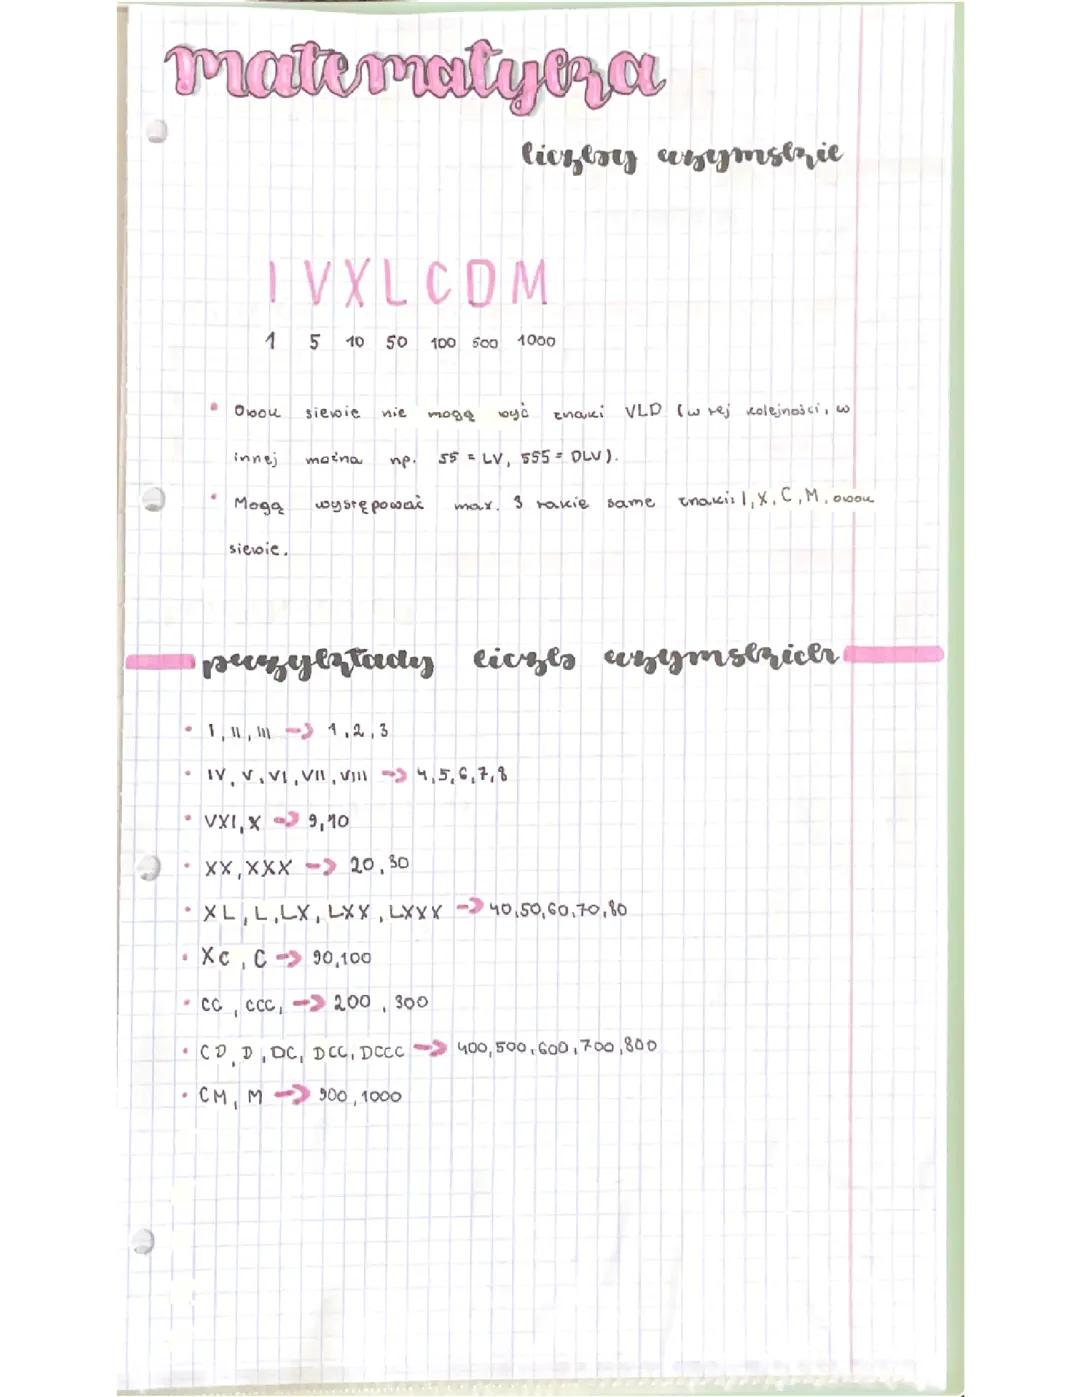 matematyka
liczby rzymskie
I V X L C D M
1 5 10 50 100 500 1000
• Obok siebie nie mogą być znaki VLD (w tej kolejności, w
innej można np. 55 = LV, 555 = DLV).
• Mogą występować max. 3 takie same znaki: I, X, C, M, obok
siebie.
przykłady liczb rzymskich
• I, II, III → 1, 2, 3
• IV, V, VI, VII, VIII → 4, 5, 6, 7, 8
• VXI, X → 9, 10
• XX, XXX → 20, 30
• XL, L, LX, LXX, LXXX → 40, 50, 60, 70, 80
• XC, C → 90, 100
• CC, CCC, → 200, 300
• CD, D, DC, DCC, DCCC → 400, 500, 600, 700, 800
• CM, M → 900, 1000